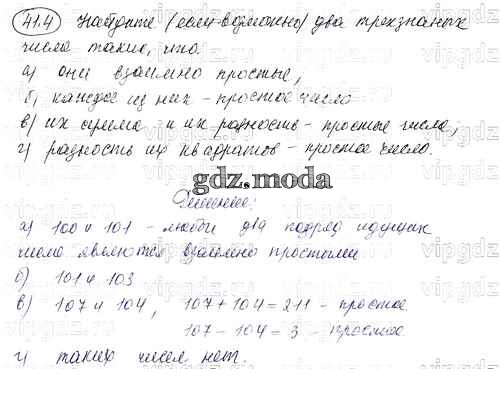 41.4 Найдите /если возможно/ два трехзначных
числа такие, что:
а) они взаимно простые;
б) каждое из них - простое число
в) их сумма и их разность - простые числа;
г) разность их квадратов - простое число.
gdz.moda
Решение:
а) 100 и 101 - любые два подряд идущих
числа являются взаимно простыми
б) 101 и 103
в) 107 и 104, 107 + 104 = 211 - простое
107 - 104 = 3 - простое
г) таких чисел нет.